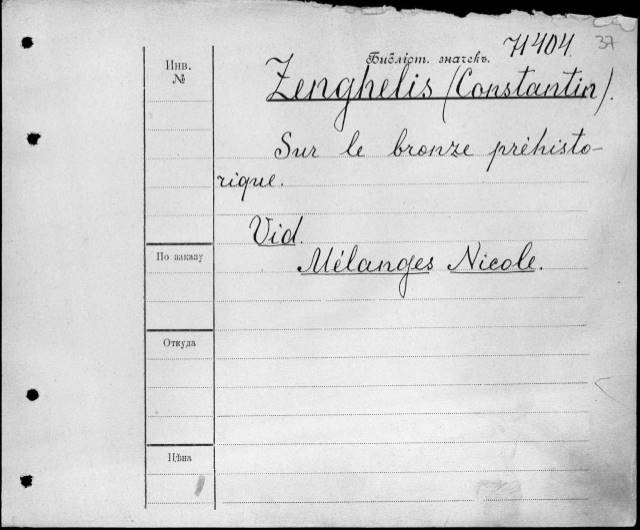 71404. 37
Библіот. значекъ.
Инв.
№
Zenghelis (Constantin).
Sur le bronze préhisto-
rique.
Vid.
Mélanges Nicole.
По заказу
Откуда
Цѣна